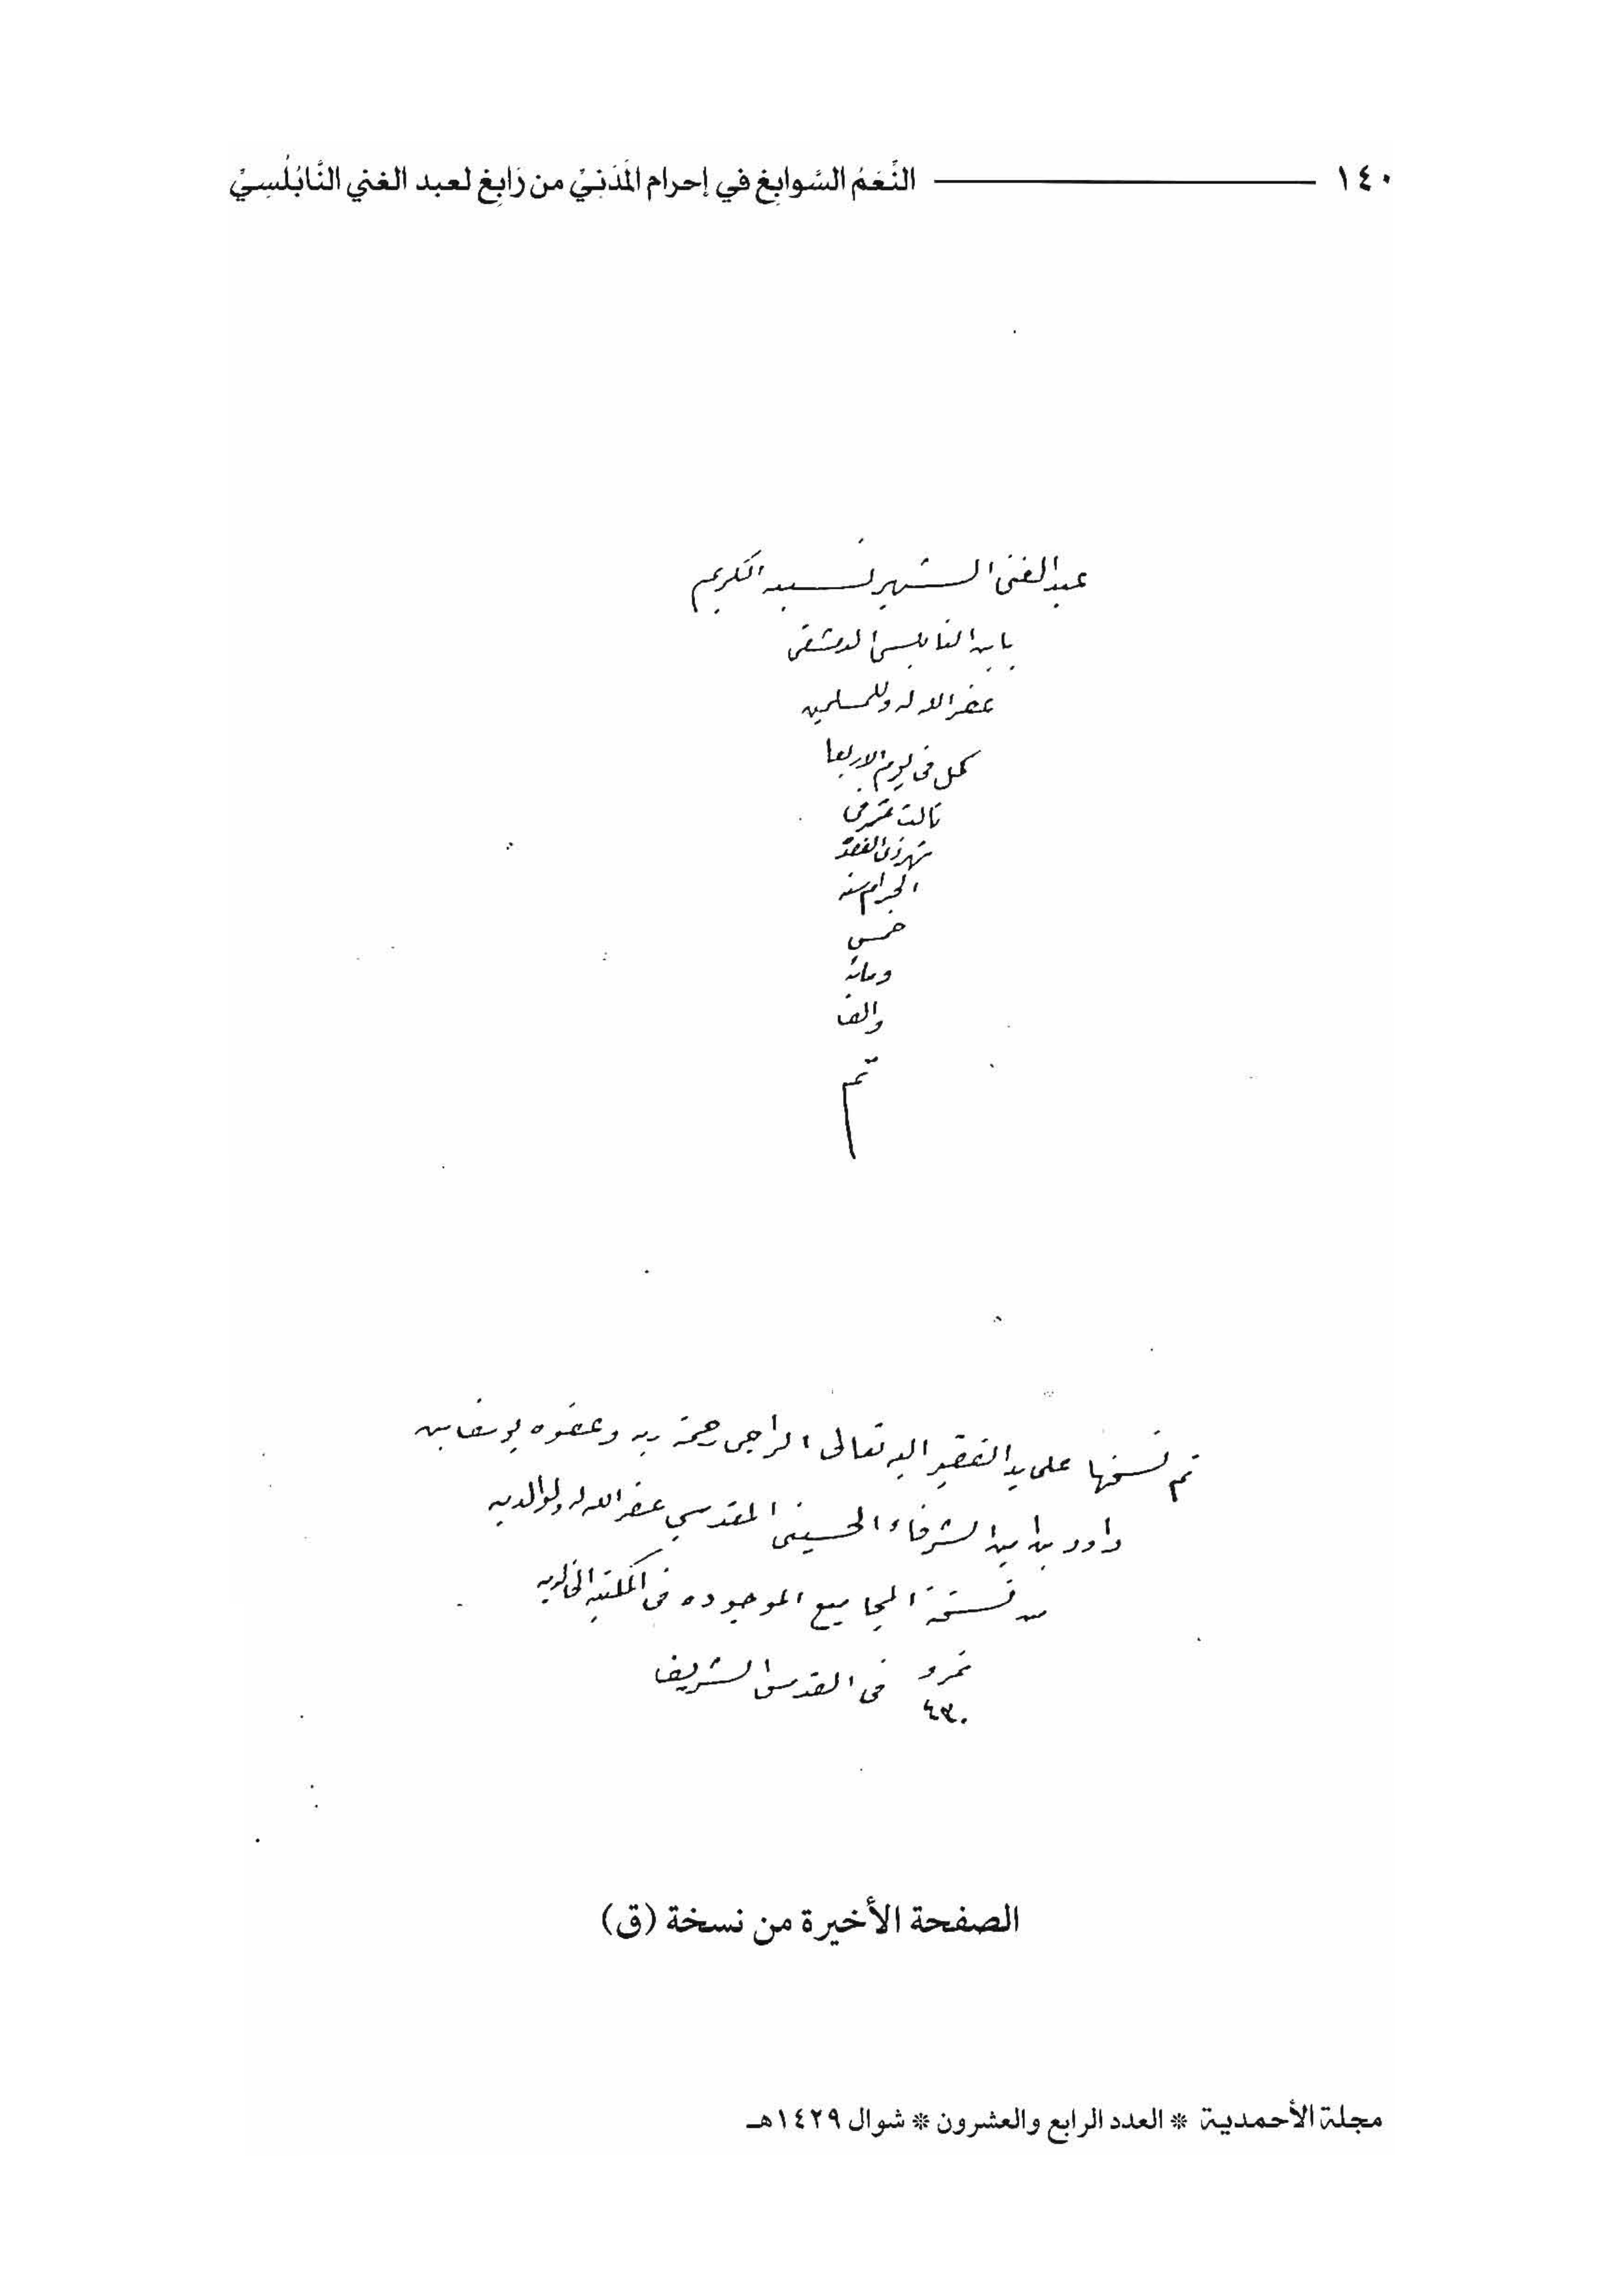 ١٤٠ النِّعَمُ السَّوابِغ في إحرام المَدَنِيْ من رَابِغ لعبد الغني النَّابُلُسِيْ
عبد الغنى الشهير نسبه الكريم
بابن النابلسى الدمشقى
غفر الله له وللمسلمين
كمل فى يوم الاربعا
ثالث عشر فى
شهر ذى القعدة
الحرام سنة
خمس
ومائة
والف
تم
تم نسخها على يد الفقير اليه تعالى الراجى رحمة ربه وعفوه يوسف بن
داود بدا بن الشرفاء الحسينى المقدسي غفر الله له ولوالديه
من نسخة المجاميع الموجوده فى المكتبه الخالديه
نمرو فى القدس الشريف
٤٣٠
الصفحة الأخيرة من نسخة (ق)
مجلة الأحمدية * العدد الرابع والعشرون * شوال ١٤٢٩هـ